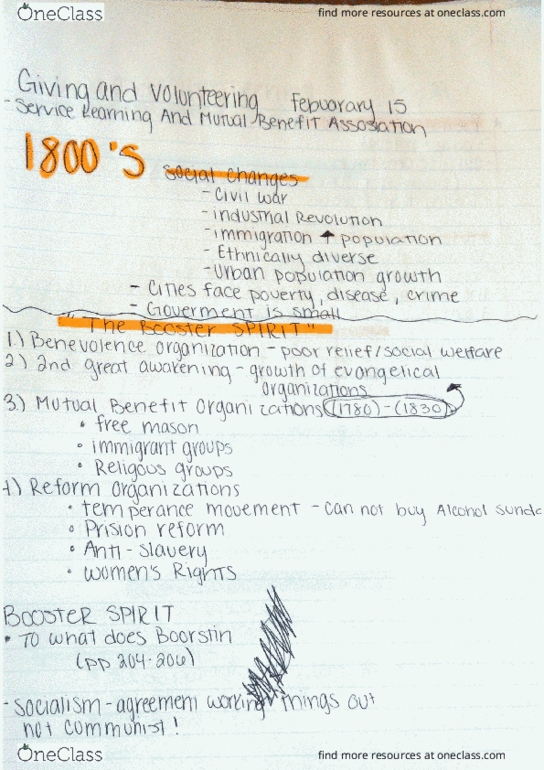 OneClass
find more resources at oneclass.com
Giving and Volunteering Febuorary 15
- Service Learning And Mutual Benefit Assosiation
1800's
social changes
- Civil war
- Industrial Revolution
- immigration ↑ population
- Ethnically diverse
- Urban population growth
- Cities face poverty, disease, crime
- Goverment is small
"The Booster SPIRIT"
1.) Benevolence organization - poor relief/social welfare
2) 2nd great awakening - growth of evangelical
organizations
3.) Mutual Benefit Organizations (1780) - (1830)
• free mason
• immigrant groups
• Religous groups
4) Reform Organizations
• temperance movement - Can not buy Alcohol Sunda
• Prision reform
• Anti - Slavery
• Women's Rights
BOOSTER SPIRIT
• TO what does Boorstin
(pp 204-206)
- Socialism - agreement working things out
not communist!
OneClass
find more resources at oneclass.com